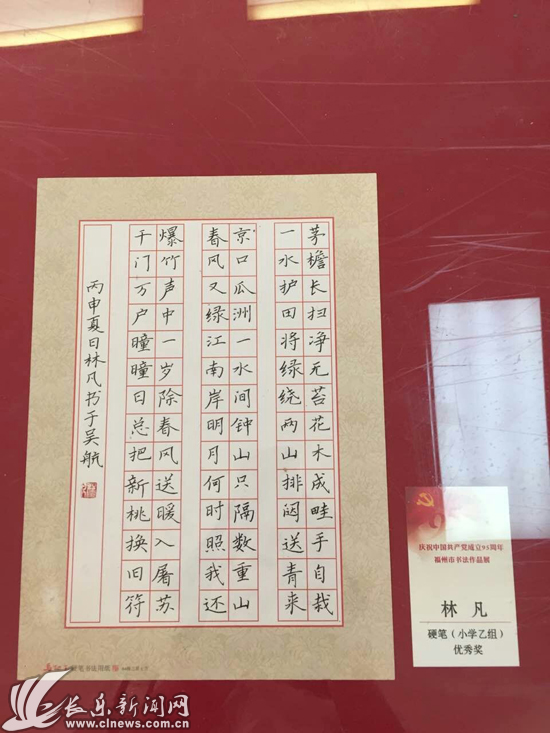 茅檐长扫净无苔花木成畦手自栽
一水护田将绿绕两山排闼送青来
京口瓜洲一水间钟山只隔数重山
春风又绿江南岸明月何时照我还
爆竹声中一岁除春风送暖入屠苏
千门万户瞳瞳日总把新桃换旧符
丙申夏日林凡书于吴航
庆祝中国共产党成立95周年
福州市书法作品展
林 凡
硬笔（小学乙组）
优秀奖
长乐新闻网
www.clnews.com.cn